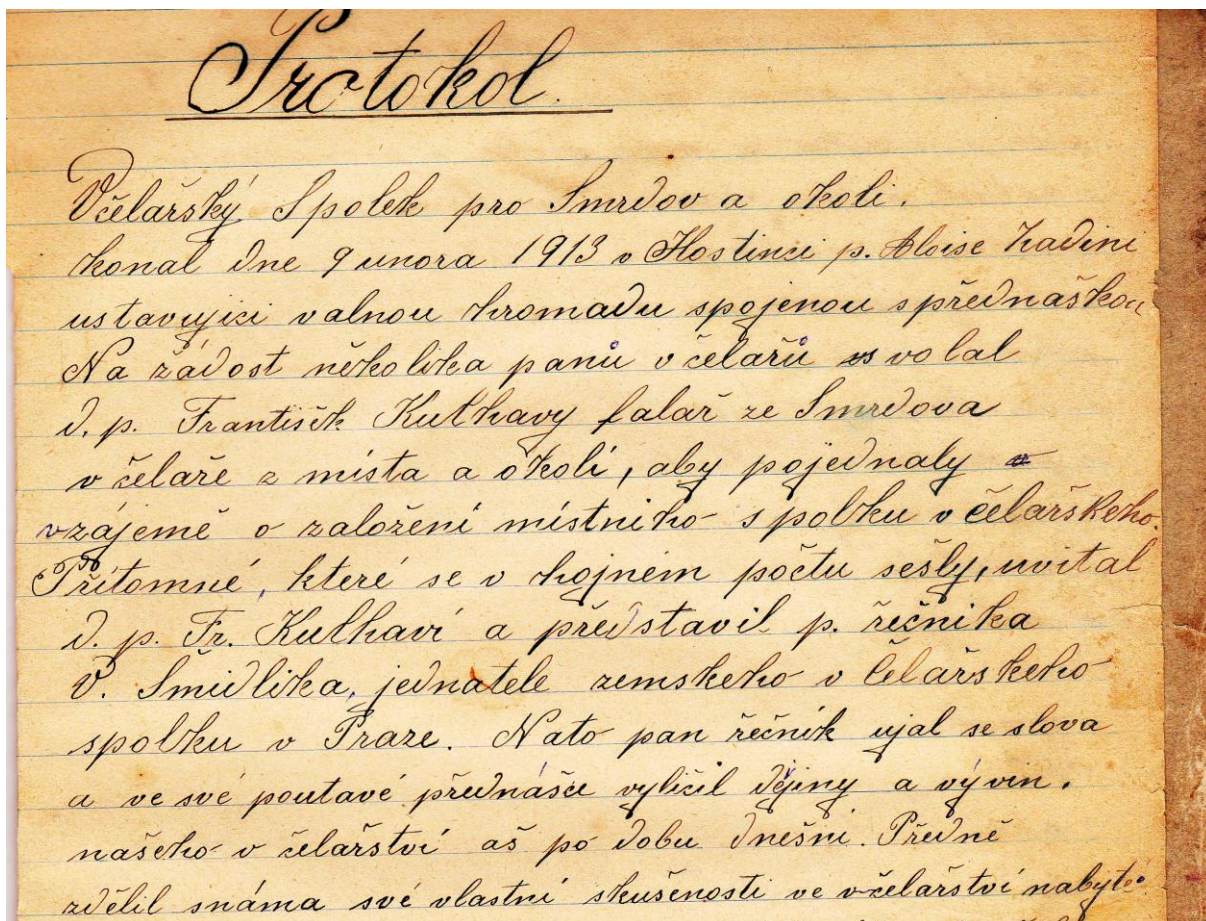 Protokol.
Včelařský Spolek pro Smrdov a okoli.
konal dne 9 unora 1913 v Hostinci p. Aloise
ustavujici valnou hromadu spojenou s přednáškou
Na žádost několika panů včelařů svolal
d. p. František Kulhavy falař ze Smrdova
včelaře z místa a okolí, aby pojednaly
vzájemě o založení místniho spolku včelařskeho.
Přítomné, které se v hojném počtu sešly, uvítal
d. p. Fr. Kulhaví a představil p. řečnika
V. Šmidlika, jednatele zemskeho včelařskeho
spolku v Praze. Nato pan řečník ujal se slova
a ve své poutavé přednášce vyličil dějiny a vývin.
našeho včelařství aš po dobu dnešní. Předně
zdělil snáma své vlastní skušenosti ve včelařství nabyté